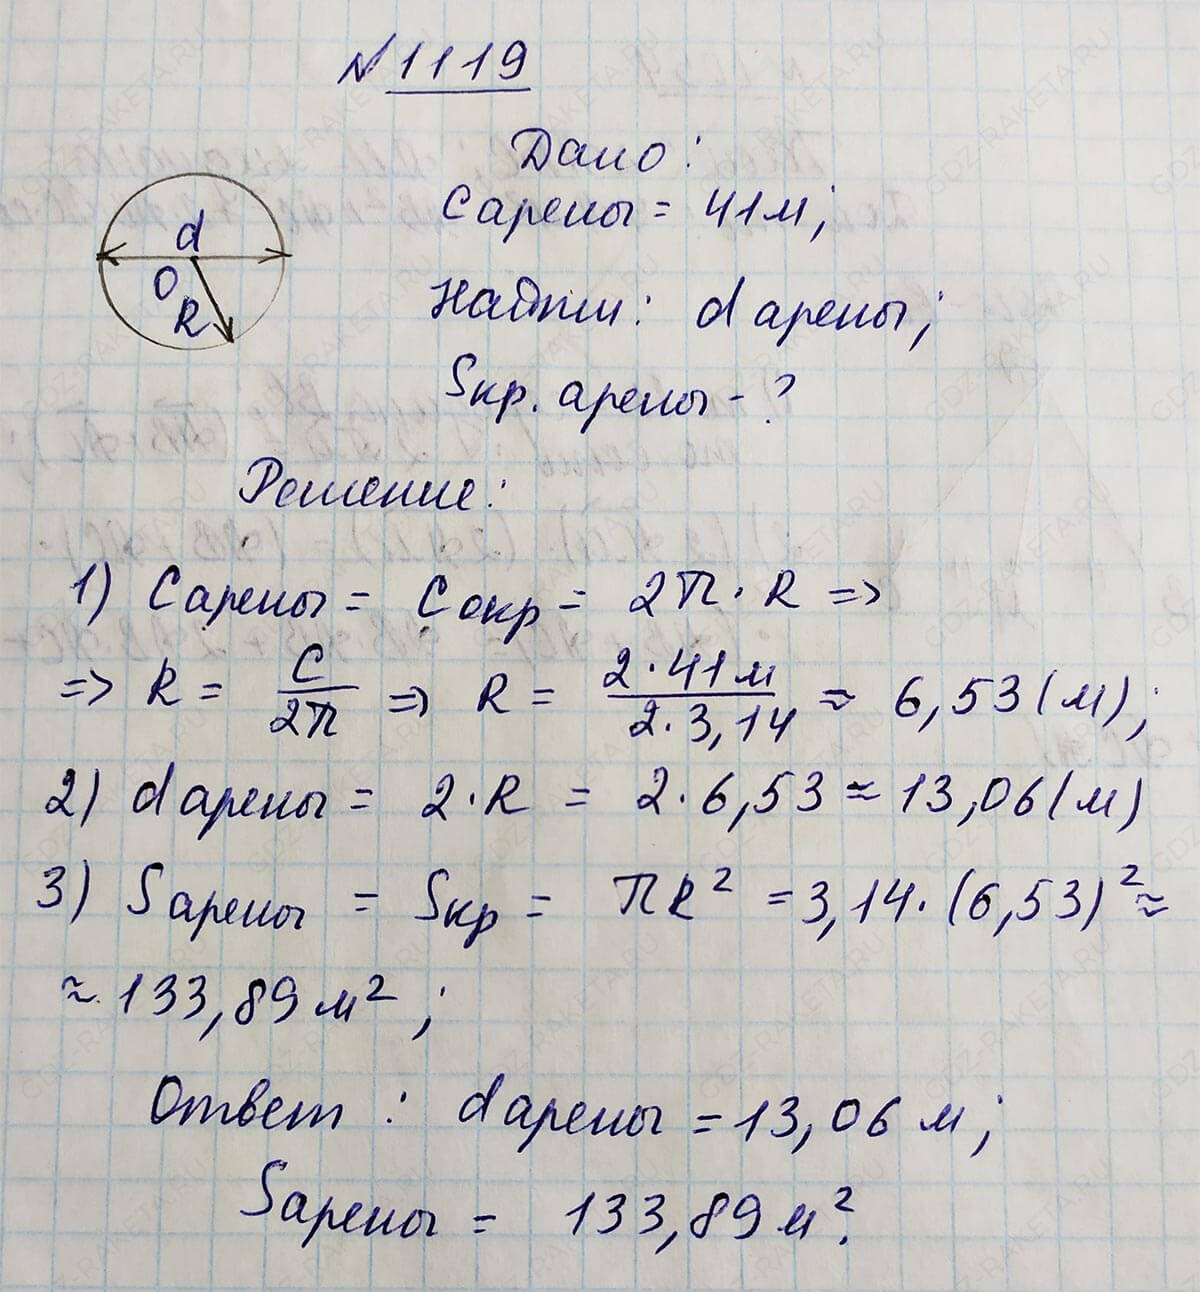 № 1119
Дано:
Cарены = 41м;
d
O
R
Найти: d арены;
Sкр. арены - ?
Решение:
1) Cарены = Cокр = 2π · R =>
=> R = C/2π => R = 2·41м/2·3,14 ≈ 6,53(м);
2) dарены = 2·R = 2·6,53 ≈ 13,06(м)
3) Sарены = Sкр = πR² = 3,14·(6,53)² ≈
≈ 133,89м²;
Ответ: dарены = 13,06 м;
Sарены = 133,89м².